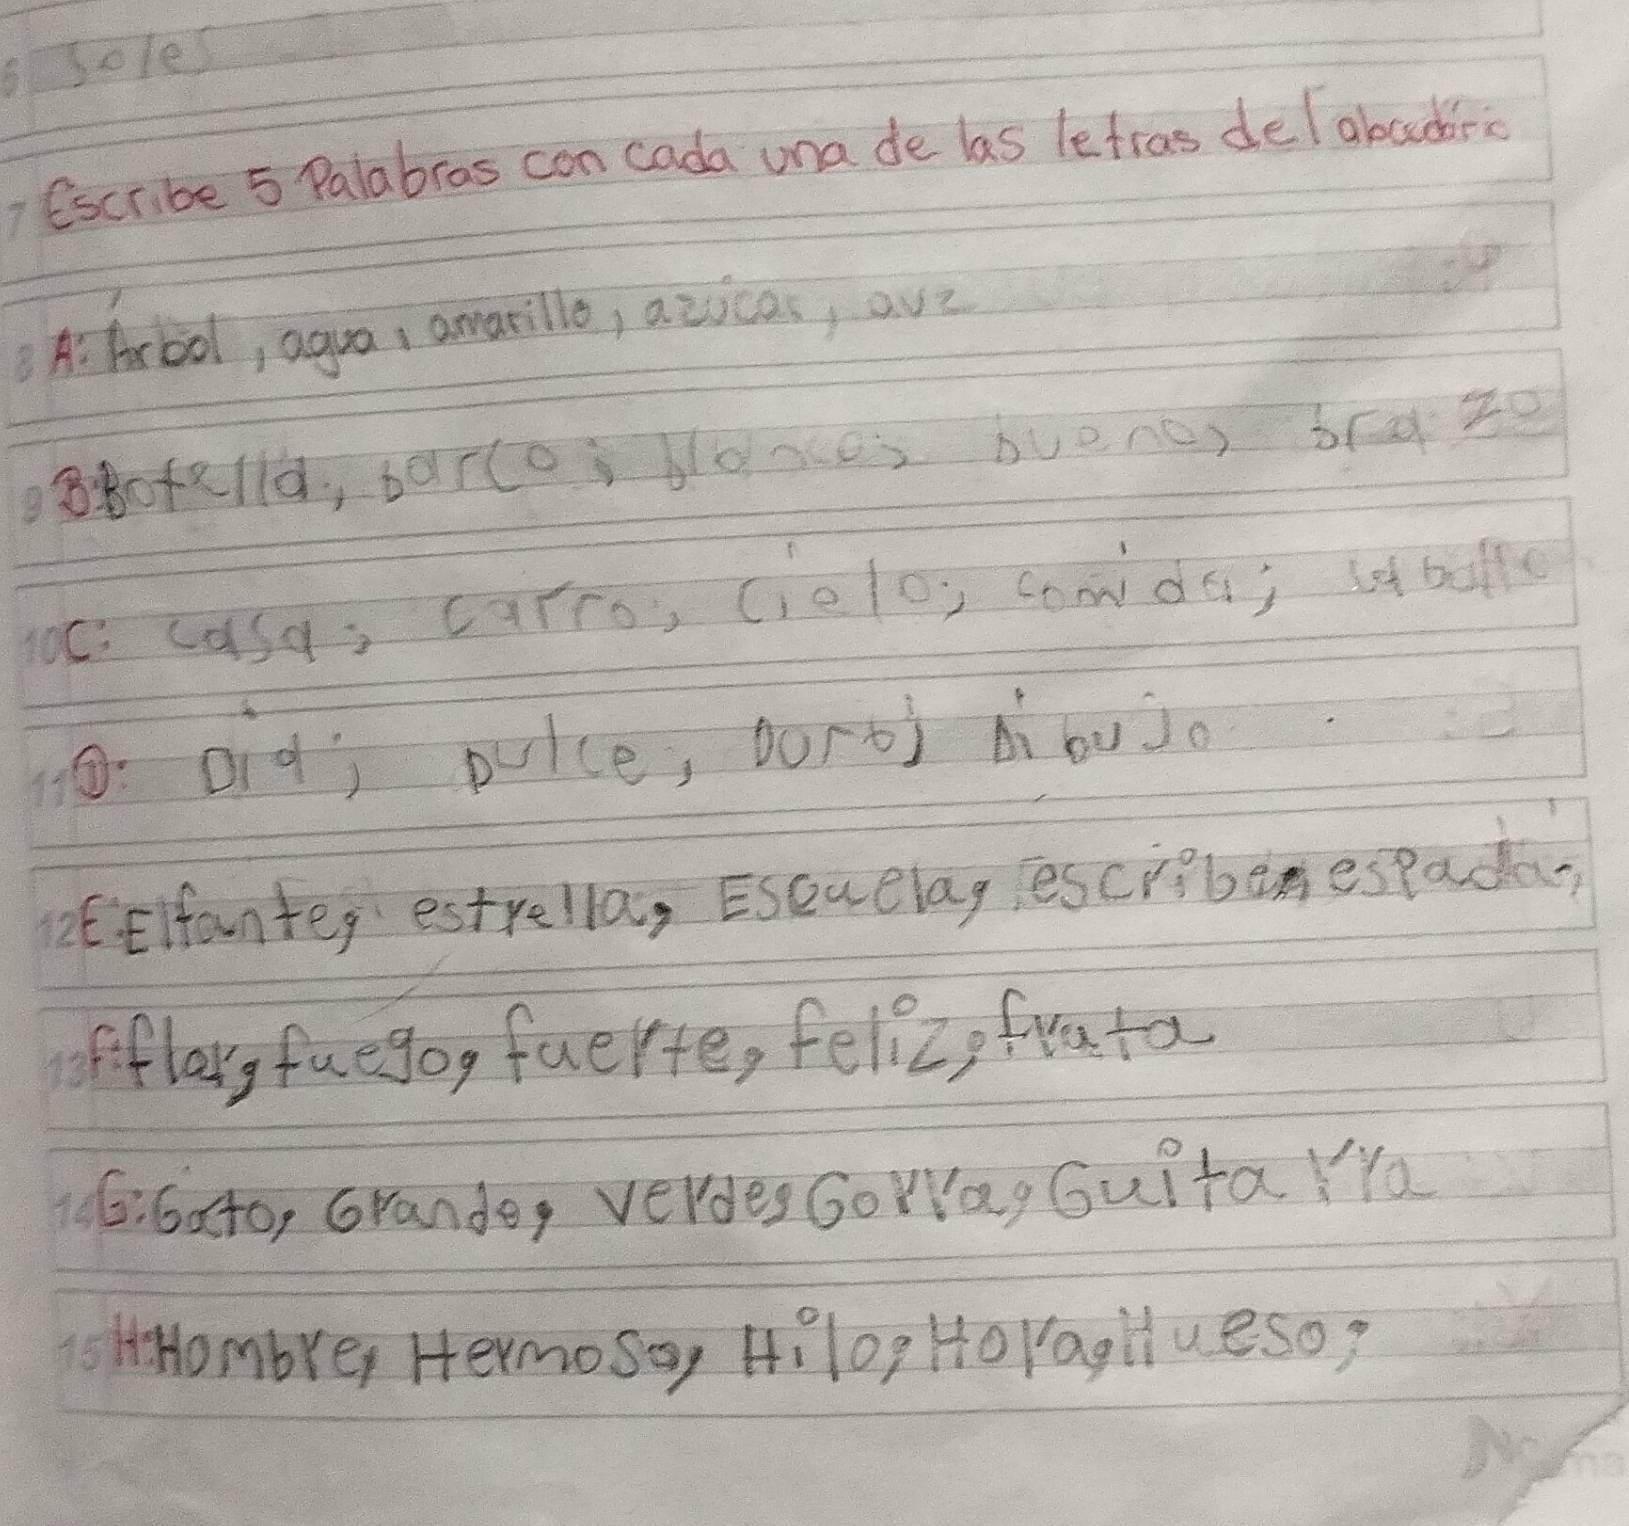 6 Soles
7 Escribe 5 Palabras con cada una de las letras del abecedario
8 A: Árbol, agua, amarillo, azúcar, ave
9 B: Botella, barco; blanco; bueno, brazo
10 C: casa; carro; cielo; comida; caballo
11 D: Dia; Dulce, Duro; Dibujo
12 E: Elfante, estrella, Escuela, escriben espada,
13 F: flor, fuego, fuerte, feliz, fruta
14 G: Gato, Grande, verde, Gorra, Guitarra
15 H: Hombre, Hermoso, Hilo, Hora, Hueso,